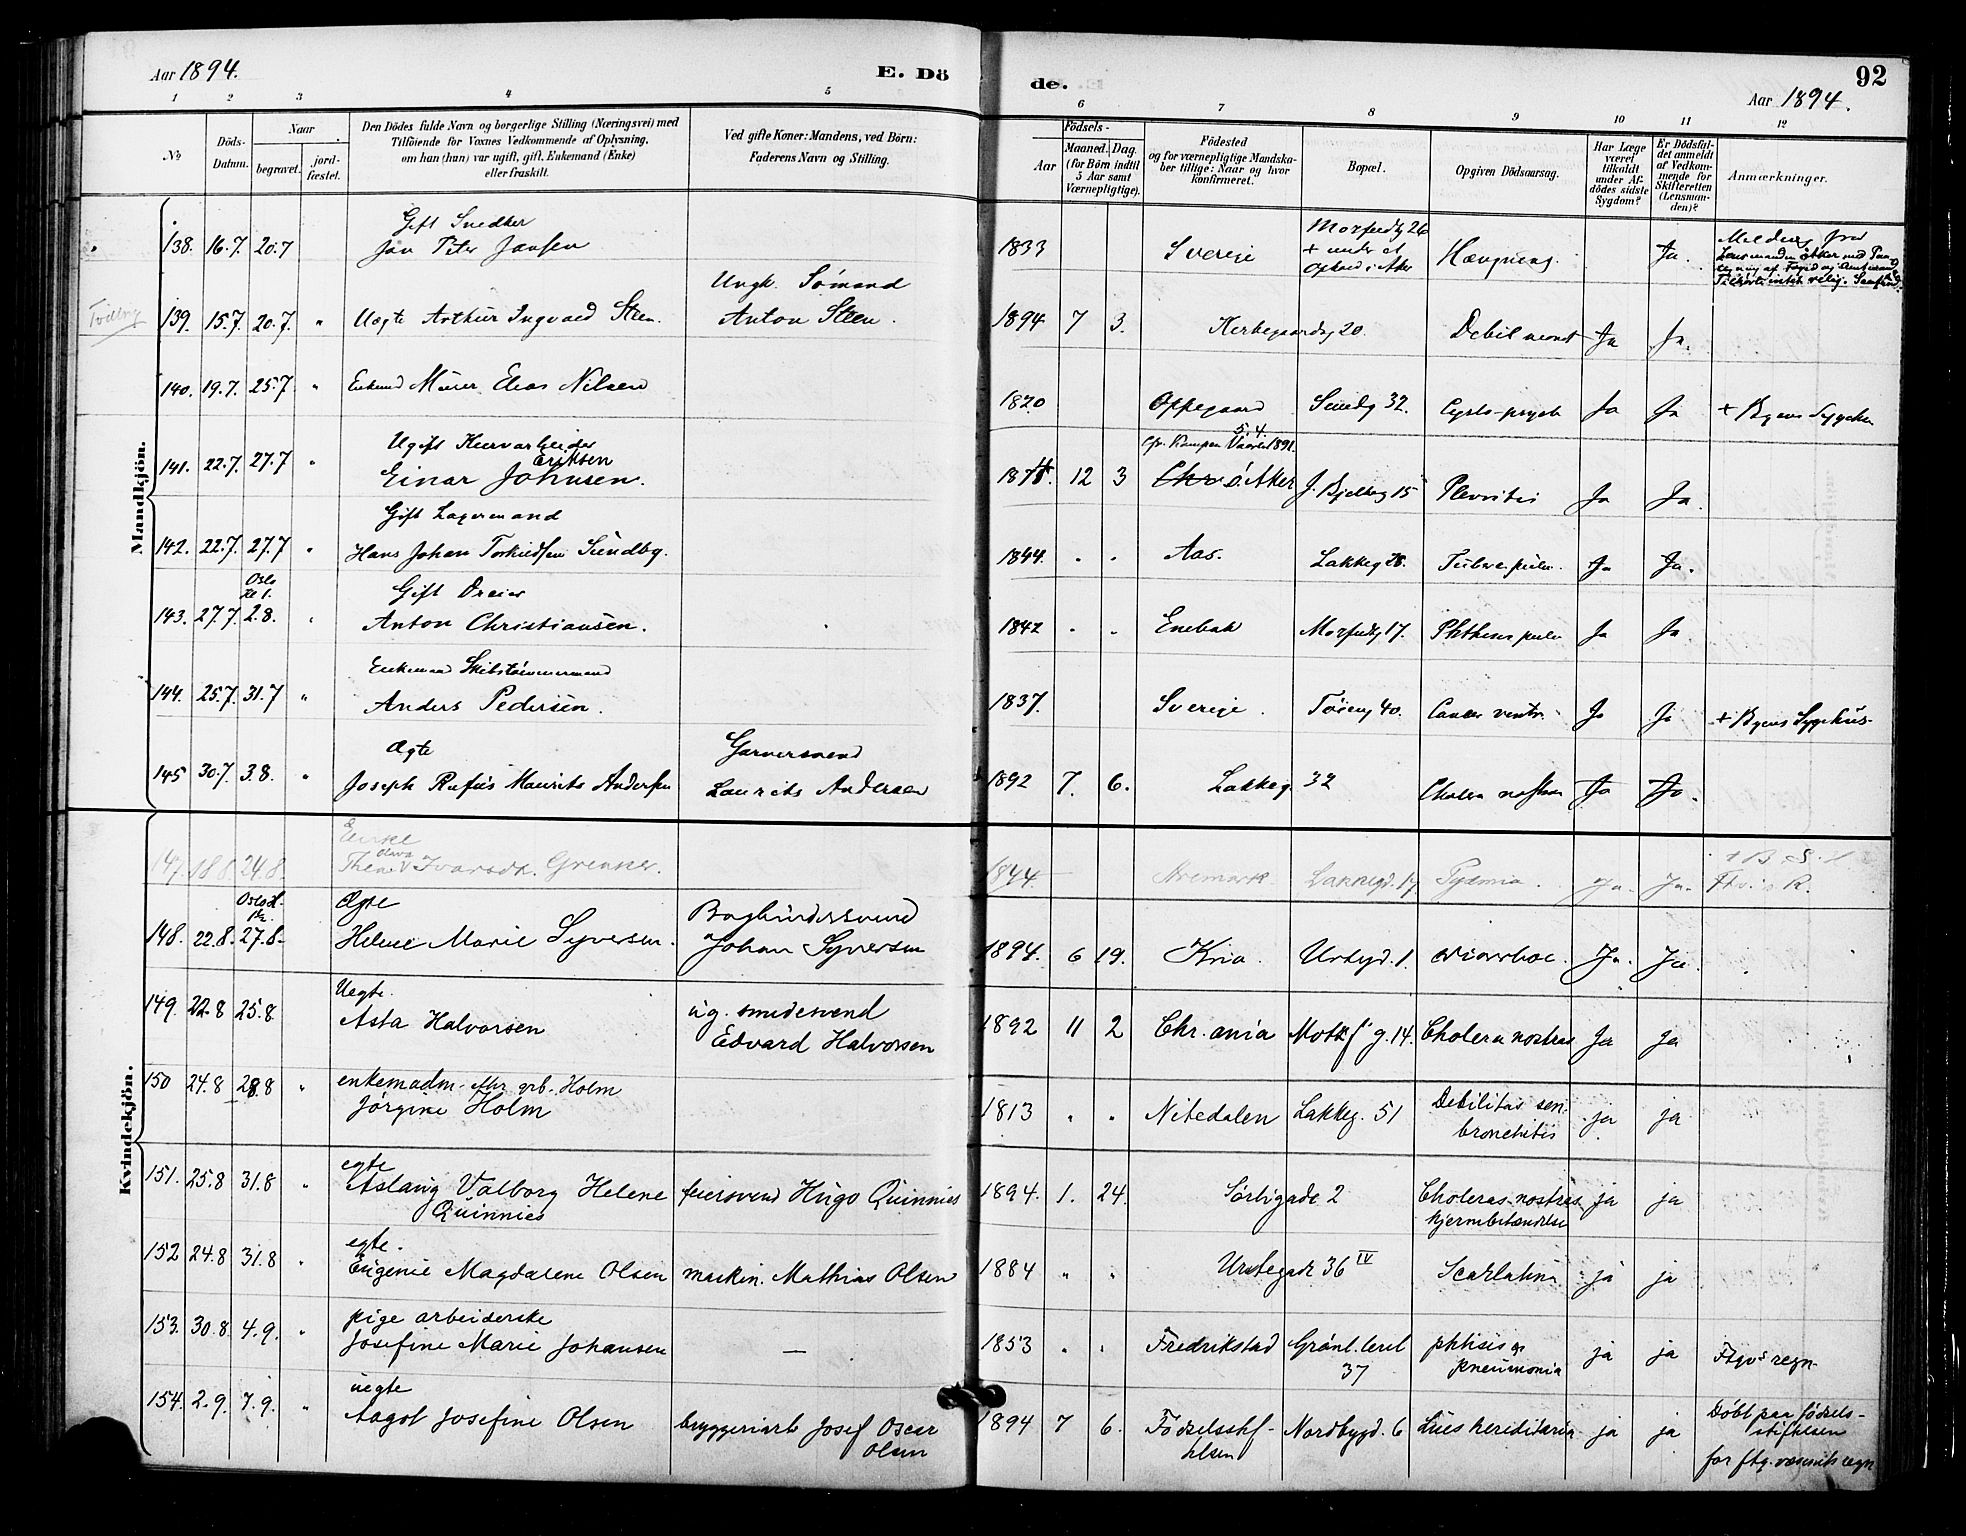 Aar 1894. E. Dö
de. 92
Aar 1894.
1 2 3 4 5
6 7 8 9 10 11 12
No
Döds-Datum.
Naar
begravet. jord-fæstet.
Den Dödes fulde Navn og borgerlige Stilling (Næringsvei) med
Tilföiende for Voxnes Vedkommende af Oplysning,
om han (hun) var ugift, gift, Enkemand (Enke)
eller fraskilt.
Ved gifte Koner: Mandens, ved Börn:
Faderens Navn og Stilling.
Födsels-
Aar Maaned. Dag.
(for Börn indtil
5 Aar samt
Værnepligtige).
Födested
og for værnepligtige Mandska-
ber tillige: Naar og hvor
konfirmeret.
Bopæl.
Opgiven Dödsaarsag.
Har Læge
været
tilkaldt
under Af-
dödes sidste
Sygdom?
Er Dödsfal-
det anmeldt
af Vedkom-
mende for
Skifteretten
(Lensman-
den)?
Anmærkninger.
Mandkjön.
Gift Snedker
138. 16.7. 20.7 Jan Peter Jansen 1833 Sverige Hængning. Ja.
Ungk. Sømand
139. 15.7. 20.7. " Uægte Arthur Ingvald Steen. Anton Steen. 1894 7 3. 20. Debil neonat Ja Ja.
140. 19.7. 25.7 " Enkemd Murer Elias Nilsen 1820 Oppegaard 32. Ja Ja + Byens Sygehus
Ugift
Eriksen
141. 22.7. 27.7 " Einar Johnsen. 12 3 Aker 15 Pleuritis Ja Ja.
Gift Lagermand
142. 22.7. 27.7 " Hans Johan Sundbg. 1844. " " Aas. Lakkeg Ja Ja.
Oslo
Kl 1. Gift Dreier
143. 27.7. 2.8. Anton Christiansen. 1842 " " Enebak 17. Ja Ja
Enkemand Skibstømmermand
144. 25.7. 31.7 " Anders Pedersen. 1837. Sverige. 40. Cancer ventr. Ja Ja + Byens Sygehus
Ægte Garversvend
145 30.7. 3.8. " Joseph Rufus Maurits Andersen Laurits Andersen 1892 7. 6. Lakkeg 32 Cholera nostras Ja Ja.
Kvindekjön.
Enke
Olava
147 18.8 24.8. Thene Ivarsdt. Grenner. 1844. Aremark Lakkegd. 17 Ja. Ja.
Ægte Bogbindersvend
148. 22.8. 27.8. Helene Marie Syversen. Johan Syversen 1894. 6 19. Kria. Urtegd. 1. Diarrhoe. Ja. Ja.
Uegte. ug. smedesvend
149. 22.8 25.8. Asta Halvorsen Edvard Halvorsen 1892 11 2 Chr.ania Motzf g. 14. Cholera nostras Ja Ja
enkemadm. Holm
150 24.8 28.8 " Jørgine Holm 1813 " " Nitedalen Lakkeg. 51 Debilitas sen.
bronchitis ja ja
egte
151. 25.8 31.8 " Aslaug Valborg Helene feiersvend Hugo Quinnies 1894. 1. 24. Sørligade 2 Choleras nostras ja ja
Quinnies hjernbetændelse
egte.
152 24.8 31.8 " Eugenie Magdalene Olsen maskin. Mathias Olsen 1884 " " Urtegade 36 IV Scarlatina ja ja
pige arbeiderske
153. 30.8. 4.9. " Josefine Marie Johansen — 1853 " " Fredrikstad Grønl. leret phthisis og ja ja Ftgvs regn.
37 pneumonia
uegte
154. 2.9. 7.9. " Aagot Josefine Olsen bryggeriarb Josef Oscar 1894 7 6. Fødselsstif- Nordbygd. 6 Lues hereditaria ja ja Døbt paa fødsels-
Olsen telsen stiftelsen
for ftg.væsenets regn